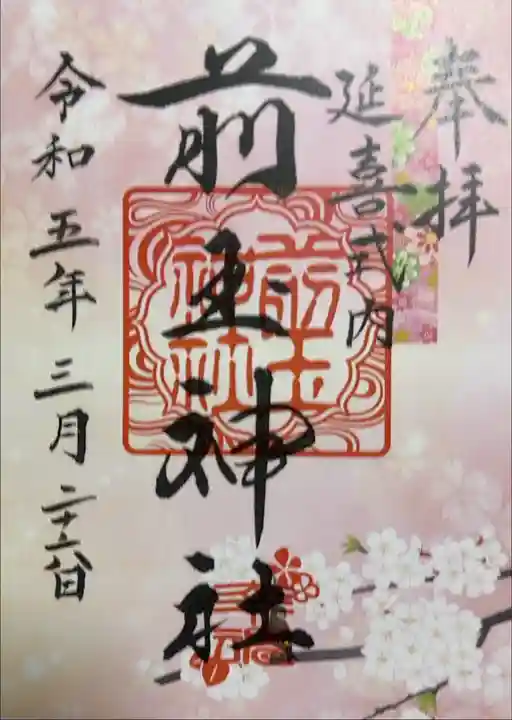 奉拝
延喜式内
前玉神社
前玉神社
令和五年三月二十六日